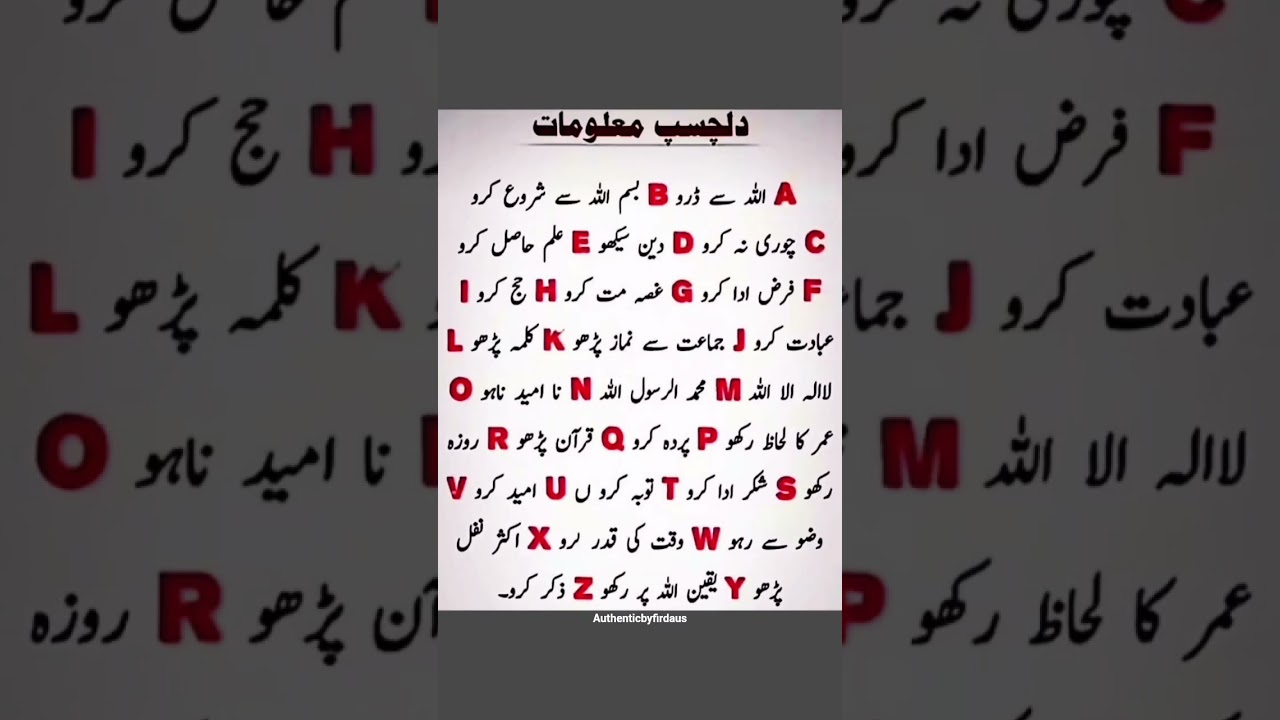 دلچسپ معلومات
A اللہ سے ڈرو B بسم اللہ سے شروع کرو
C چوری نہ کرو D دین سیکھو E علم حاصل کرو
F فرض ادا کرو G غصہ مت کرو H حج کرو I
عبادت کرو J جماعت سے نماز پڑھو K کلمہ پڑھو L
لاالہ الا اللہ M محمد الرسول اللہ N نا امید ناہو O
عمر کا لحاظ رکھو P پردہ کرو Q قرآن پڑھو R روزہ
رکھو S شکر ادا کرو T توبہ کرو ں U امید کرو V
وضو سے رہو W وقت کی قدر لرو X اکثر نفل
پڑھو Y یقین اللہ پر رکھو Z ذکر کرو۔
Authenticbyfirdaus